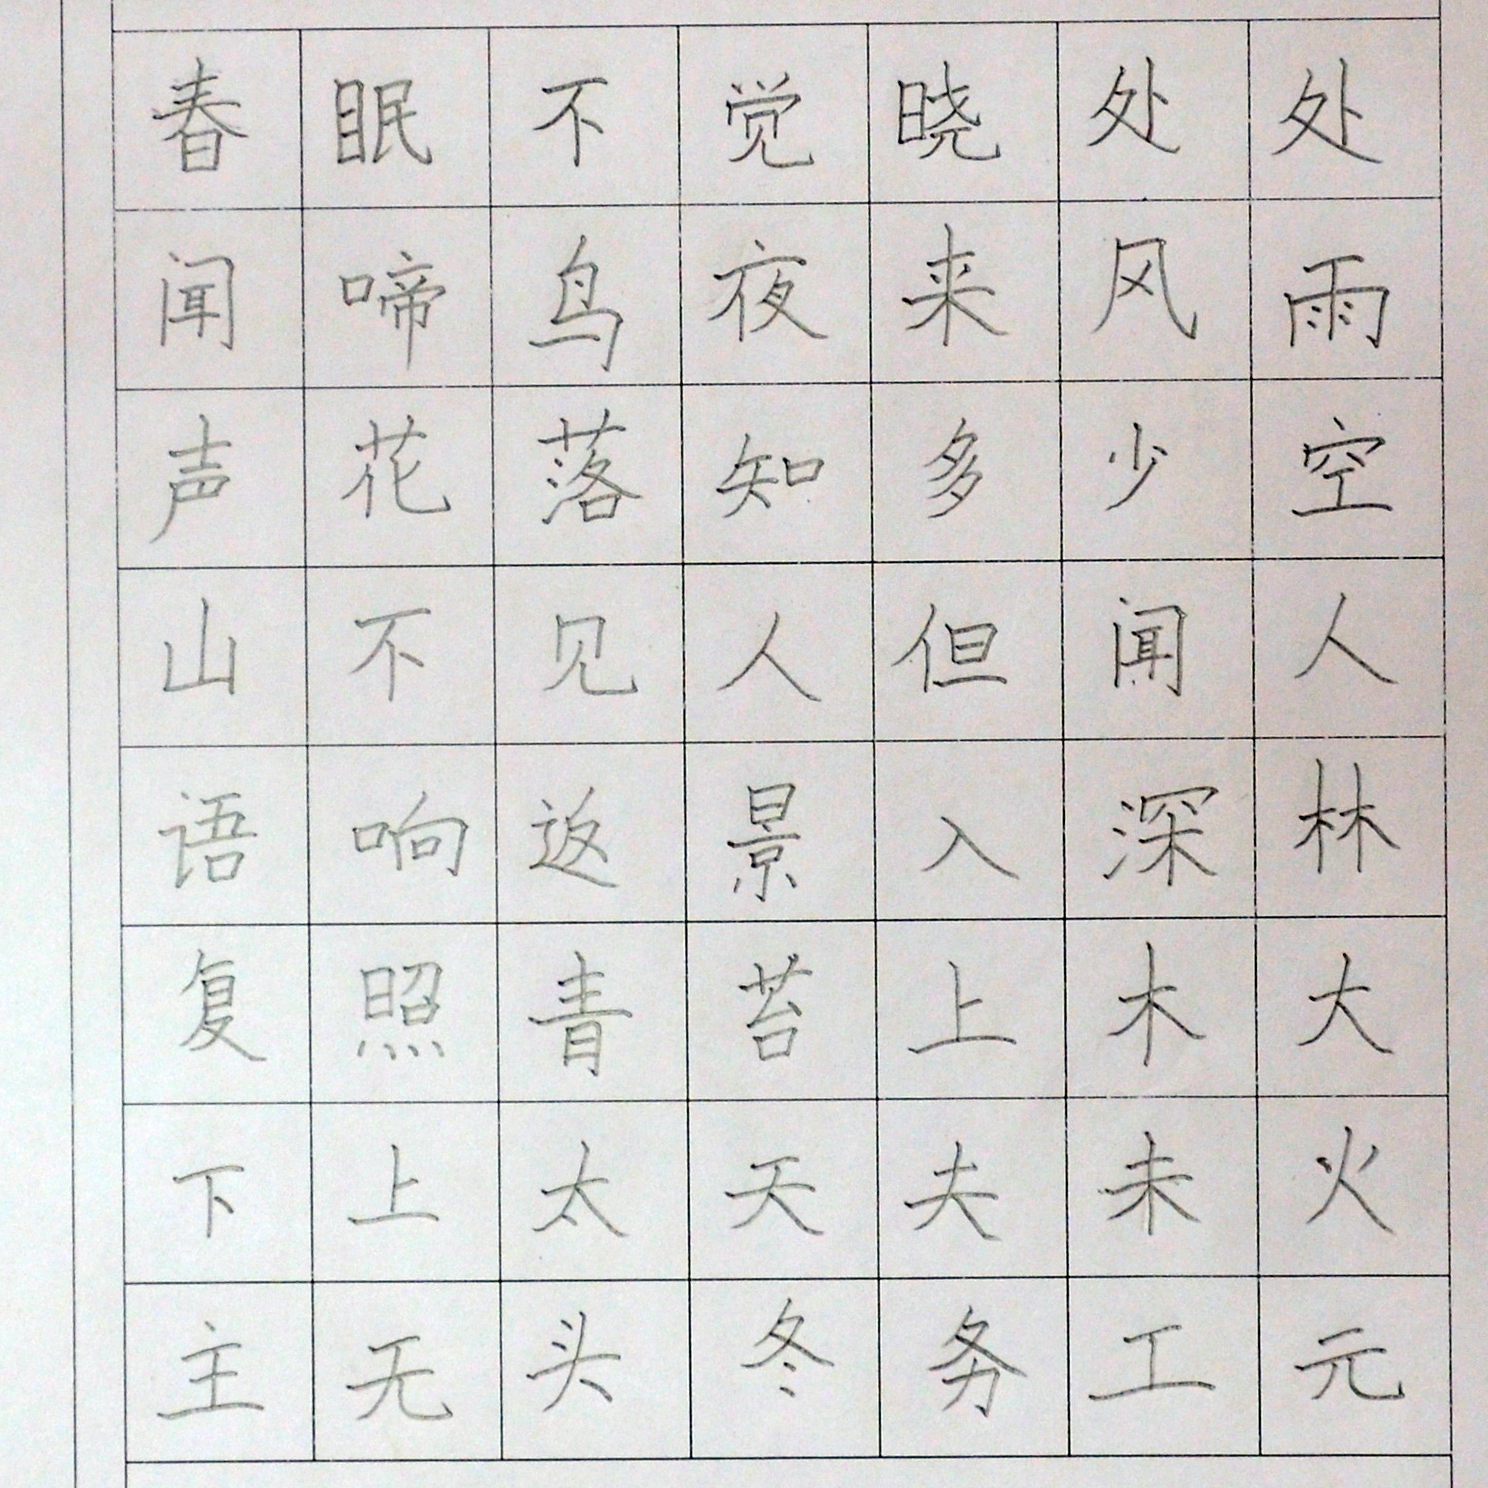 春眠不觉晓处处
闻啼鸟夜来风雨
声花落知多少空
山不见人但闻人
语响返景入深林
复照青苔上木大
下上太天夫未火
主无头冬务工元